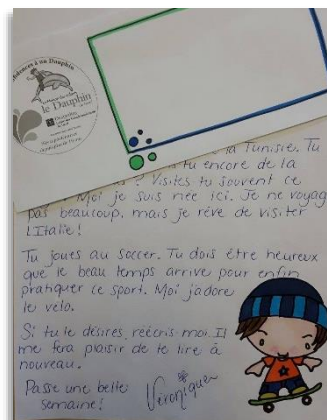 le Dauphin
la Tunisie. Tu
tu encore de la
? Visites-tu souvent ce
Moi je suis née ici. Je ne voyage
pas beaucoup, mais je rêve de visiter
L'Italie!
Tu joues au soccer. Tu dois être heureux
que le beau temps arrive pour enfin
pratiquer ce sport. Moi j'adore
le vélo.
Si tu le désires, réécris-moi. Il
me fera plaisir de te lire à
nouveau.
Passe une belle
semaine!
Véronique